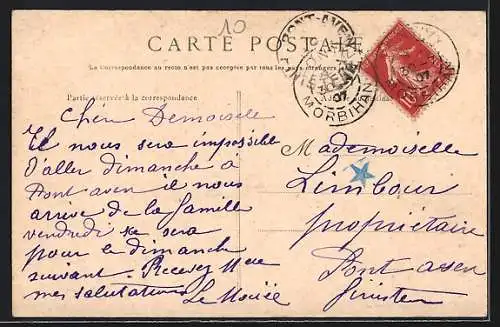 10
CARTE POSTALE
La Correspondance au recto n'est pas acceptée par tous les pays étrangers
Partie réservée à la correspondance
PONT-AVEN
MORBIHAN
07
10
07
Chère Demoiselle
Il nous sera impossible
d'aller dimanche à
Pont aven il nous
arrive de la famille
vendredi se sera
pour le dimanche
suivant. Recevez
mes salutations
Le
Mademoiselle
Limbour
propriétaire
Pont aven
finister